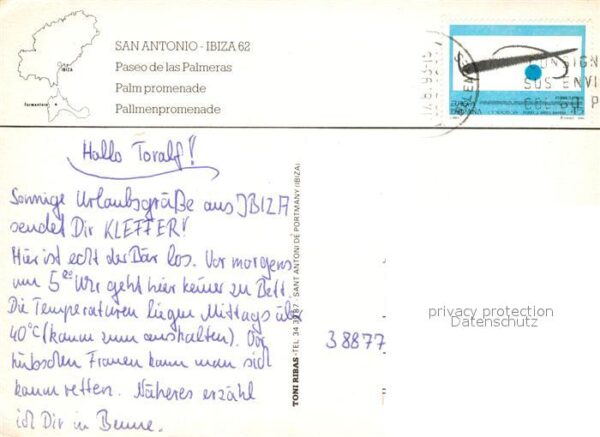 SAN ANTONIO - IBIZA 62
Paseo de las Palmeras
Palm promenade
Pallmenpromenade
IBIZA
Formentera
CONSIGN
SUS ENVI
P
Hallo Toralf!
Sonnige Urlaubsgrüße aus IBIZA
sendet Dir KLEFFER!
Hier ist echt der Bär los. Vor morgens
um 5 00 Uhr geht hier keiner zu Bett.
Die Temperaturen liegen Mittags über
40°C (kaum zum aushalten). Vor
hübschen Frauen kann man sich
kaum retten. Näheres erzähl
ich Dir in
TONI RIBAS - TEL. 34 SANT ANTONI DE PORTMANY (IBIZA)
38877
privacy protection
Datenschutz